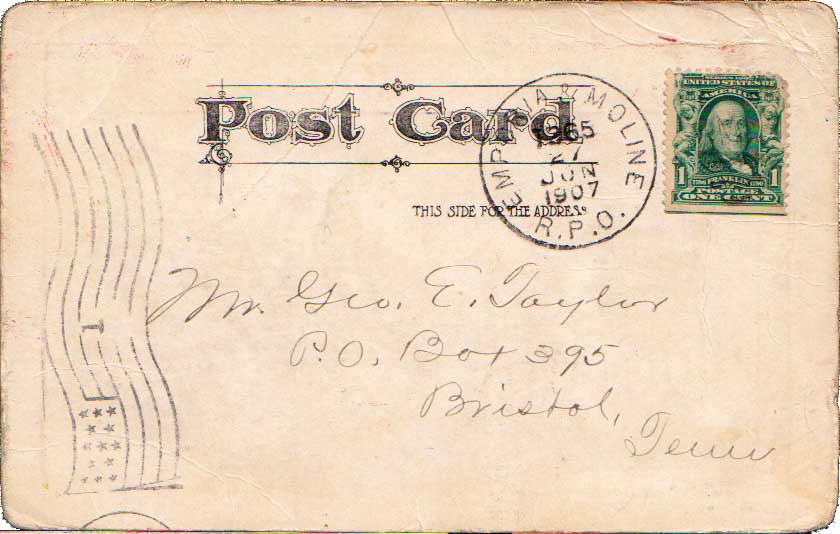 Post Card
THIS SIDE FOR THE ADDRESS
EMPORIA & MOLINE
27
JUN
1907
R.P.O.
SERIES 1902
UNITED STATES OF
AMERICA
1 1706 FRANKLIN 1790 1
POSTAGE
ONE CENT
Mr. Geo. E. Taylor
P.O. Box 395
Bristol,
Tenn
1